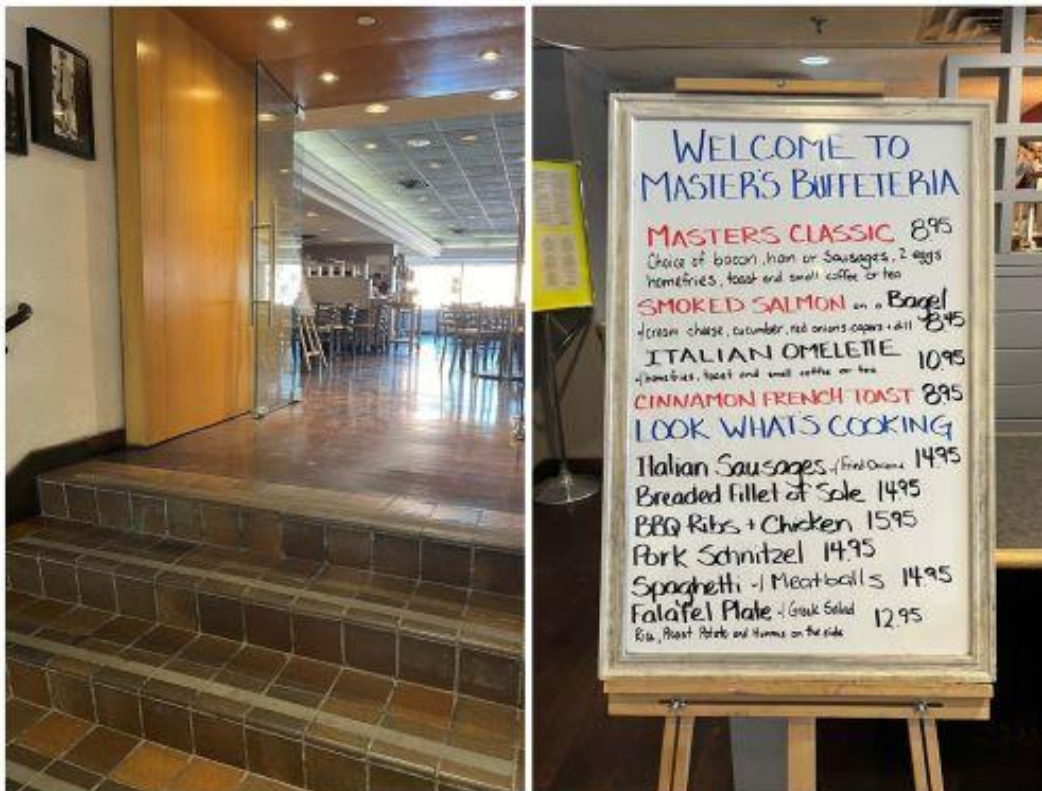 WELCOME TO
MASTER'S BUFFETERIA
MASTERS CLASSIC 895
Choice of bacon, ham or Sausages, 2 eggs
homefries, toast and small coffee or tea
SMOKED SALMON on a Bagel
w/cream cheese, cucumber, red onions, capers + dill 895
ITALIAN OMELETTE 10.95
w/homefries, toast and small coffee or tea
CINNAMON FRENCH TOAST 895
LOOK WHATS COOKING
Italian Sausages w/ Fried Onions 14.95
Breaded Fillet of Sole 1495
BBQ Ribs + Chicken 1595
Pork Schnitzel 14.95
Spaghetti w/ Meatballs 14.95
Falafel Plate w/ Greek Salad 12.95
Rice, Roast Potato and Hummus on the side